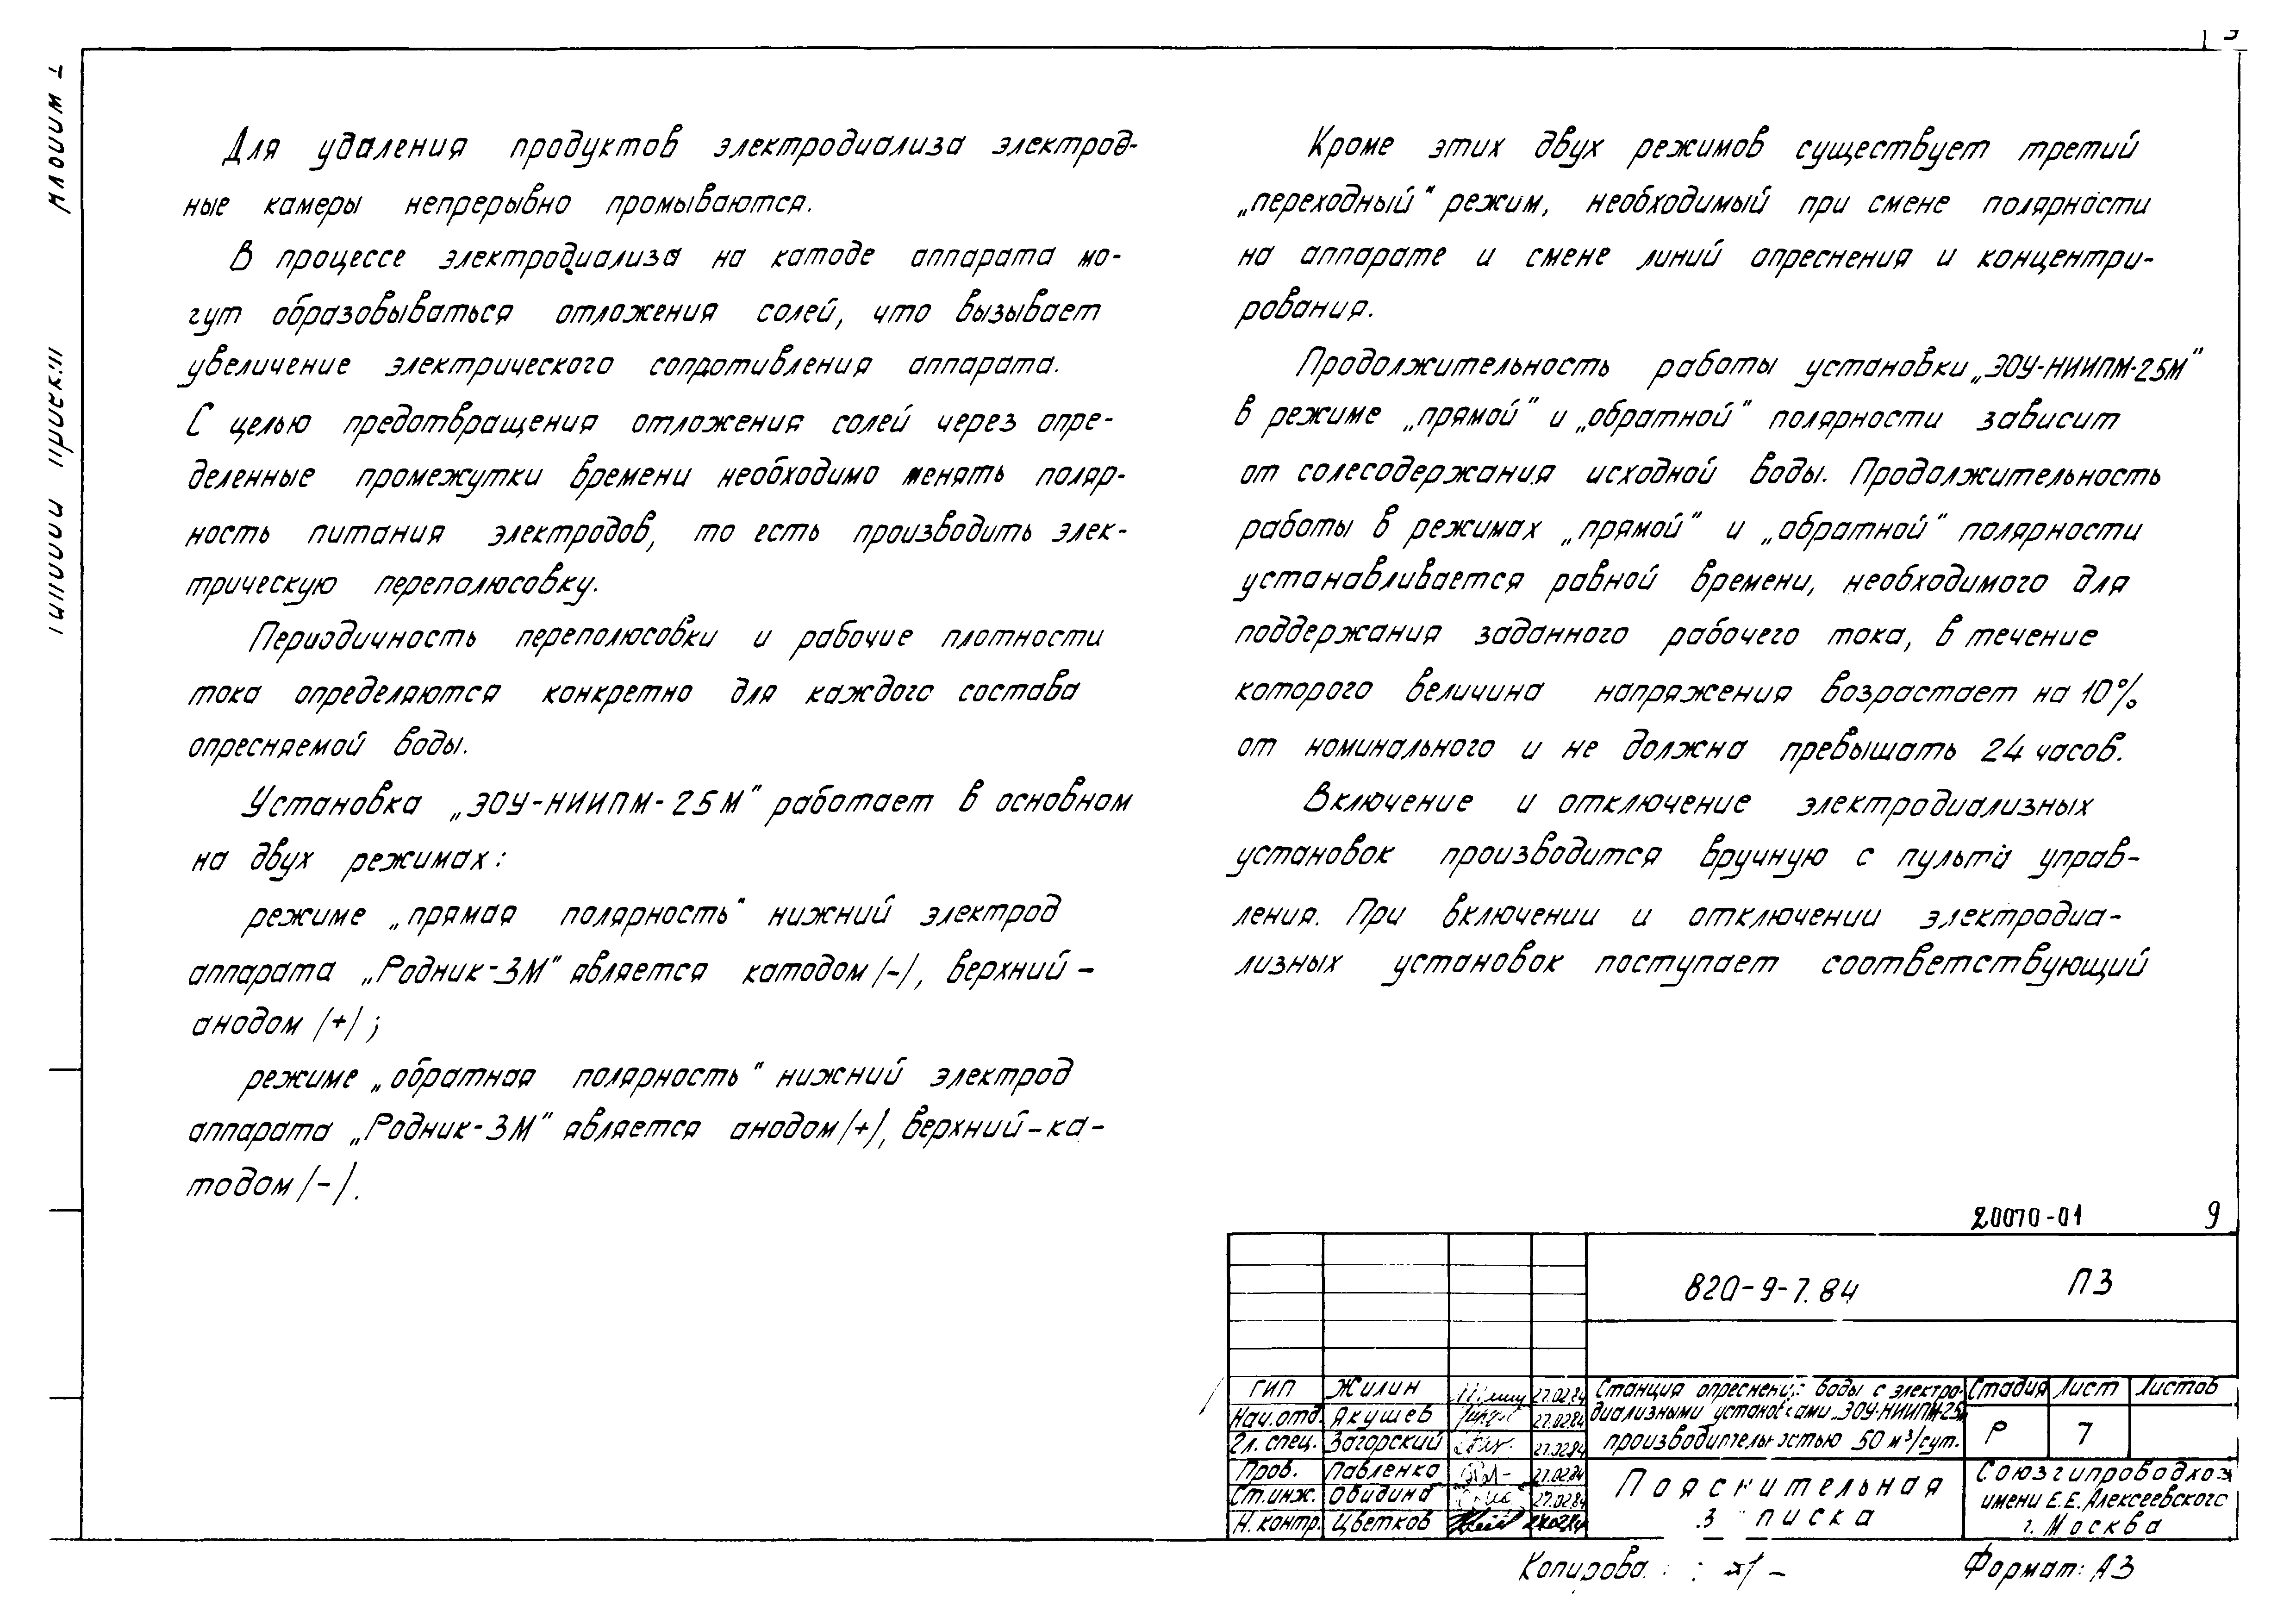 Для удаления продуктов электродиализа электрод-
ные камеры непрерывно промываются.
В процессе электродиализа на катоде аппарата мо-
гут образовываться отложения солей, что вызывает
увеличение электрического сопротивления аппарата.
С целью предотвращения отложения солей через опре-
деленные промежутки времени необходимо менять поляр-
ность питания электродов, то есть производить элек-
трическую переполюсовку.
Периодичность переполюсовки и рабочие плотности
тока определяются конкретно для каждого состава
опресняемой воды.
Установка „ЭОУ-НИИПМ-25М" работает в основном
на двух режимах:
режиме „прямая полярность" нижний электрод
аппарата „Родник-3М" является катодом /-/, верхний -
анодом /+/;
режиме „обратная полярность" нижний электрод
аппарата „Родник-3М" является анодом /+/, верхний-ка-
тодом /-/.
Кроме этих двух режимов существует третий
„переходный" режим, необходимый при смене полярности
на аппарате и смене линий опреснения и концентри-
рования.
Продолжительность работы установки „ЭОУ-НИИПМ-25М"
в режиме „прямой" и „обратной" полярности зависит
от солесодержания исходной воды. Продолжительность
работы в режимах „прямой" и „обратной" полярности
устанавливается равной времени, необходимого для
поддержания заданного рабочего тока, в течение
которого величина напряжения возрастает на 10%
от номинального и не должна превышать 24 часов.
Включение и отключение электродиализных
установок производится вручную с пульта управ-
ления. При включении и отключении электродиа-
лизных установок поступает соответствующий
20070-01 9
820-9-7.84 ПЗ
ГИП Жилин 27.02.84
Нач.отд. Якушев 27.02.84
Гл. спец. Загорский 27.02.84
Пров. Павленко 27.02.84
Ст.инж. Обидина 27.02.84
Н.контр. Цветков
Станция опреснения воды с электро-
диализными установками „ЭОУ-НИИПМ-25М
производительностью 50 м³/сут.
Стадия Лист Листов
Р 7
Пояснительная
записка
Союзгипроводхоз
имени Е.Е. Алексеевского
г. Москва
Формат: А3